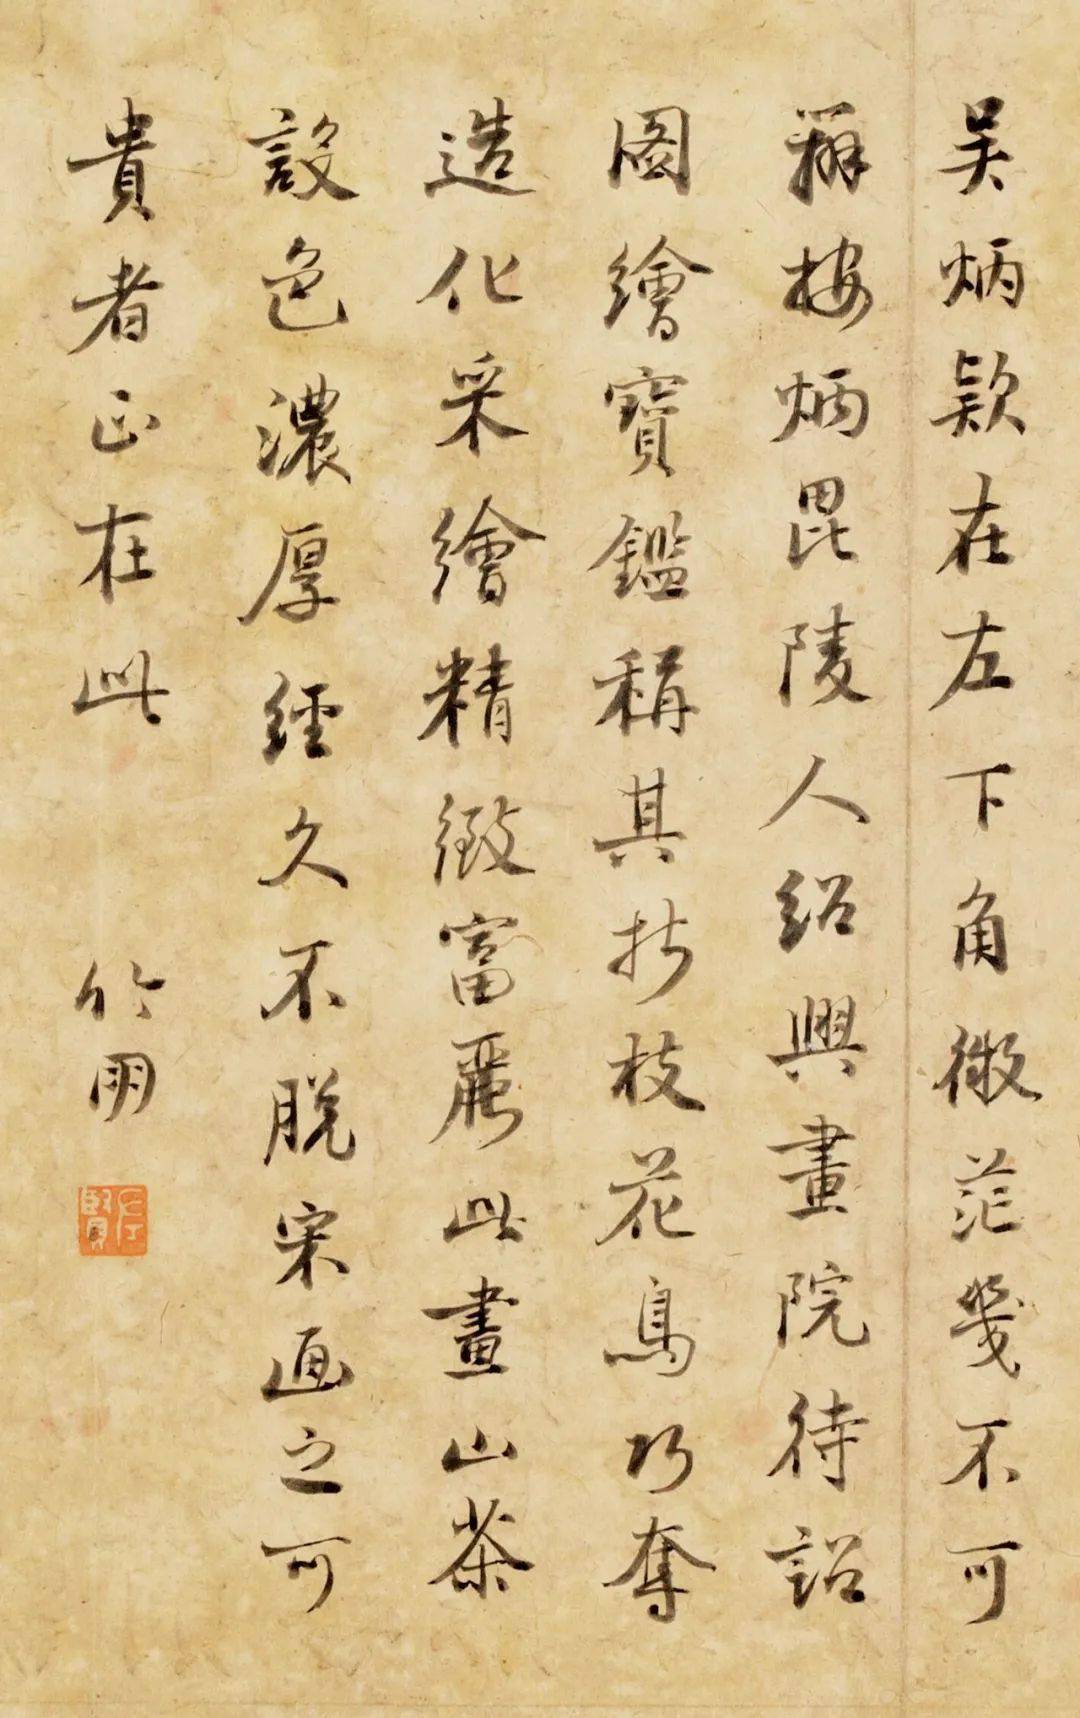 吴炳款在左下角微茫幾不可
辨按炳毘陵人紹興畫院待詔
圖繪寶鑑稱其折枝花鳥巧奪
造化采繪精緻富麗此畫山茶
設色濃厚經久不脫宋画之可
貴者正在此 竹朋